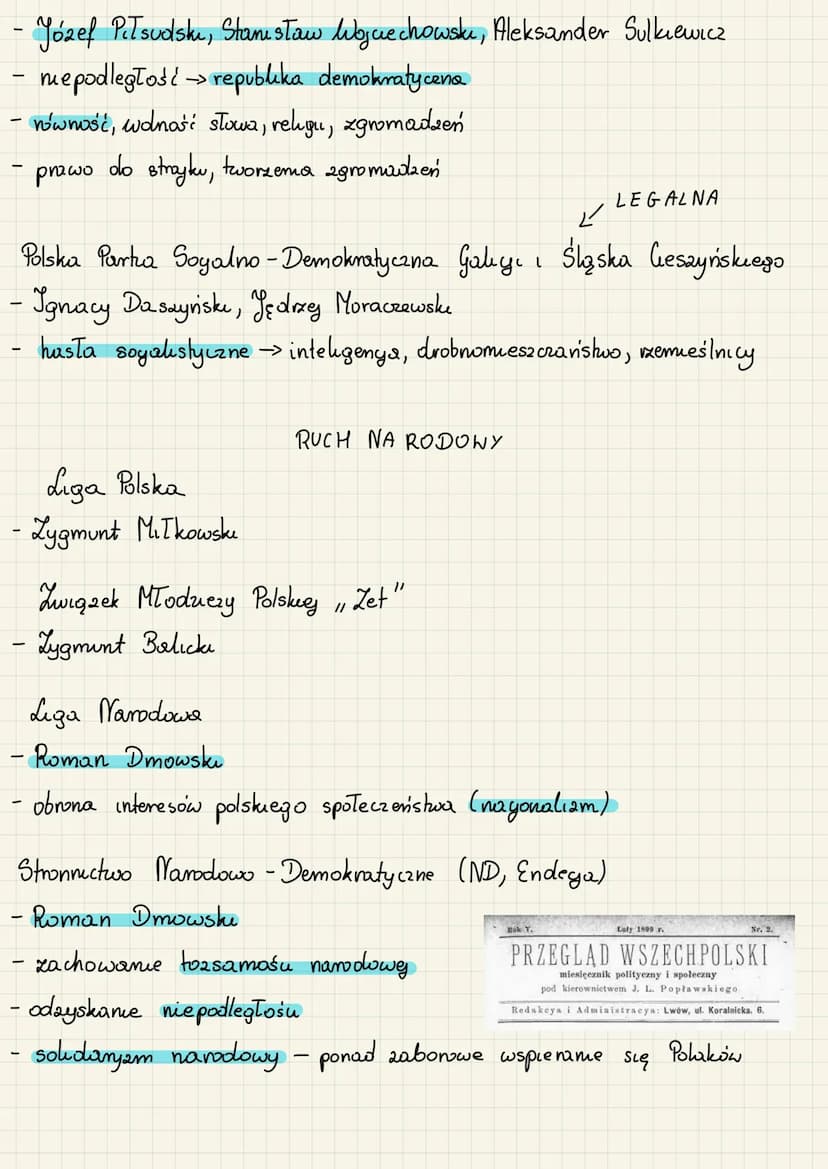 - Józef Piłsudski, Stanisław Wojciechowski, Aleksander Sulkiewicz
- niepodległość → republika demokratyczna
- równość, wolność słowa, religii, zgromadzeń
- prawo do strajku, tworzenia zgromadzeń
LEGALNA
Polska Partia Socjalno-Demokratyczna Galicji i Śląska Cieszyńskiego
- Ignacy Daszyński, Jędrzej Moraczewski
- hasła socjalistyczne → inteligencja, drobnomieszczaństwo, rzemieślnicy
RUCH NARODOWY
Liga Polska
- Zygmunt Miłkowski
Związek Młodzieży Polskiej „Zet"
- Zygmunt Balicki
Liga Narodowa
- Roman Dmowski
- obrona interesów polskiego społeczeństwa (nacjonalizm)
Stronnictwo Narodowo-Demokratyczne (ND, Endecja)
- Roman Dmowski
- zachowanie tożsamości narodowej
- odzyskanie niepodległości
- solidaryzm narodowy – ponad zaborowe wspieranie się Polaków
Rok V. Luty 1899 r. Nr. 2.
PRZEGLĄD WSZECHPOLSKI
miesięcznik polityczny i społeczny
pod kierownictwem J. L. Popławskiego
Redakcya i Administracya: Lwów, ul. Koralnicka. 6.